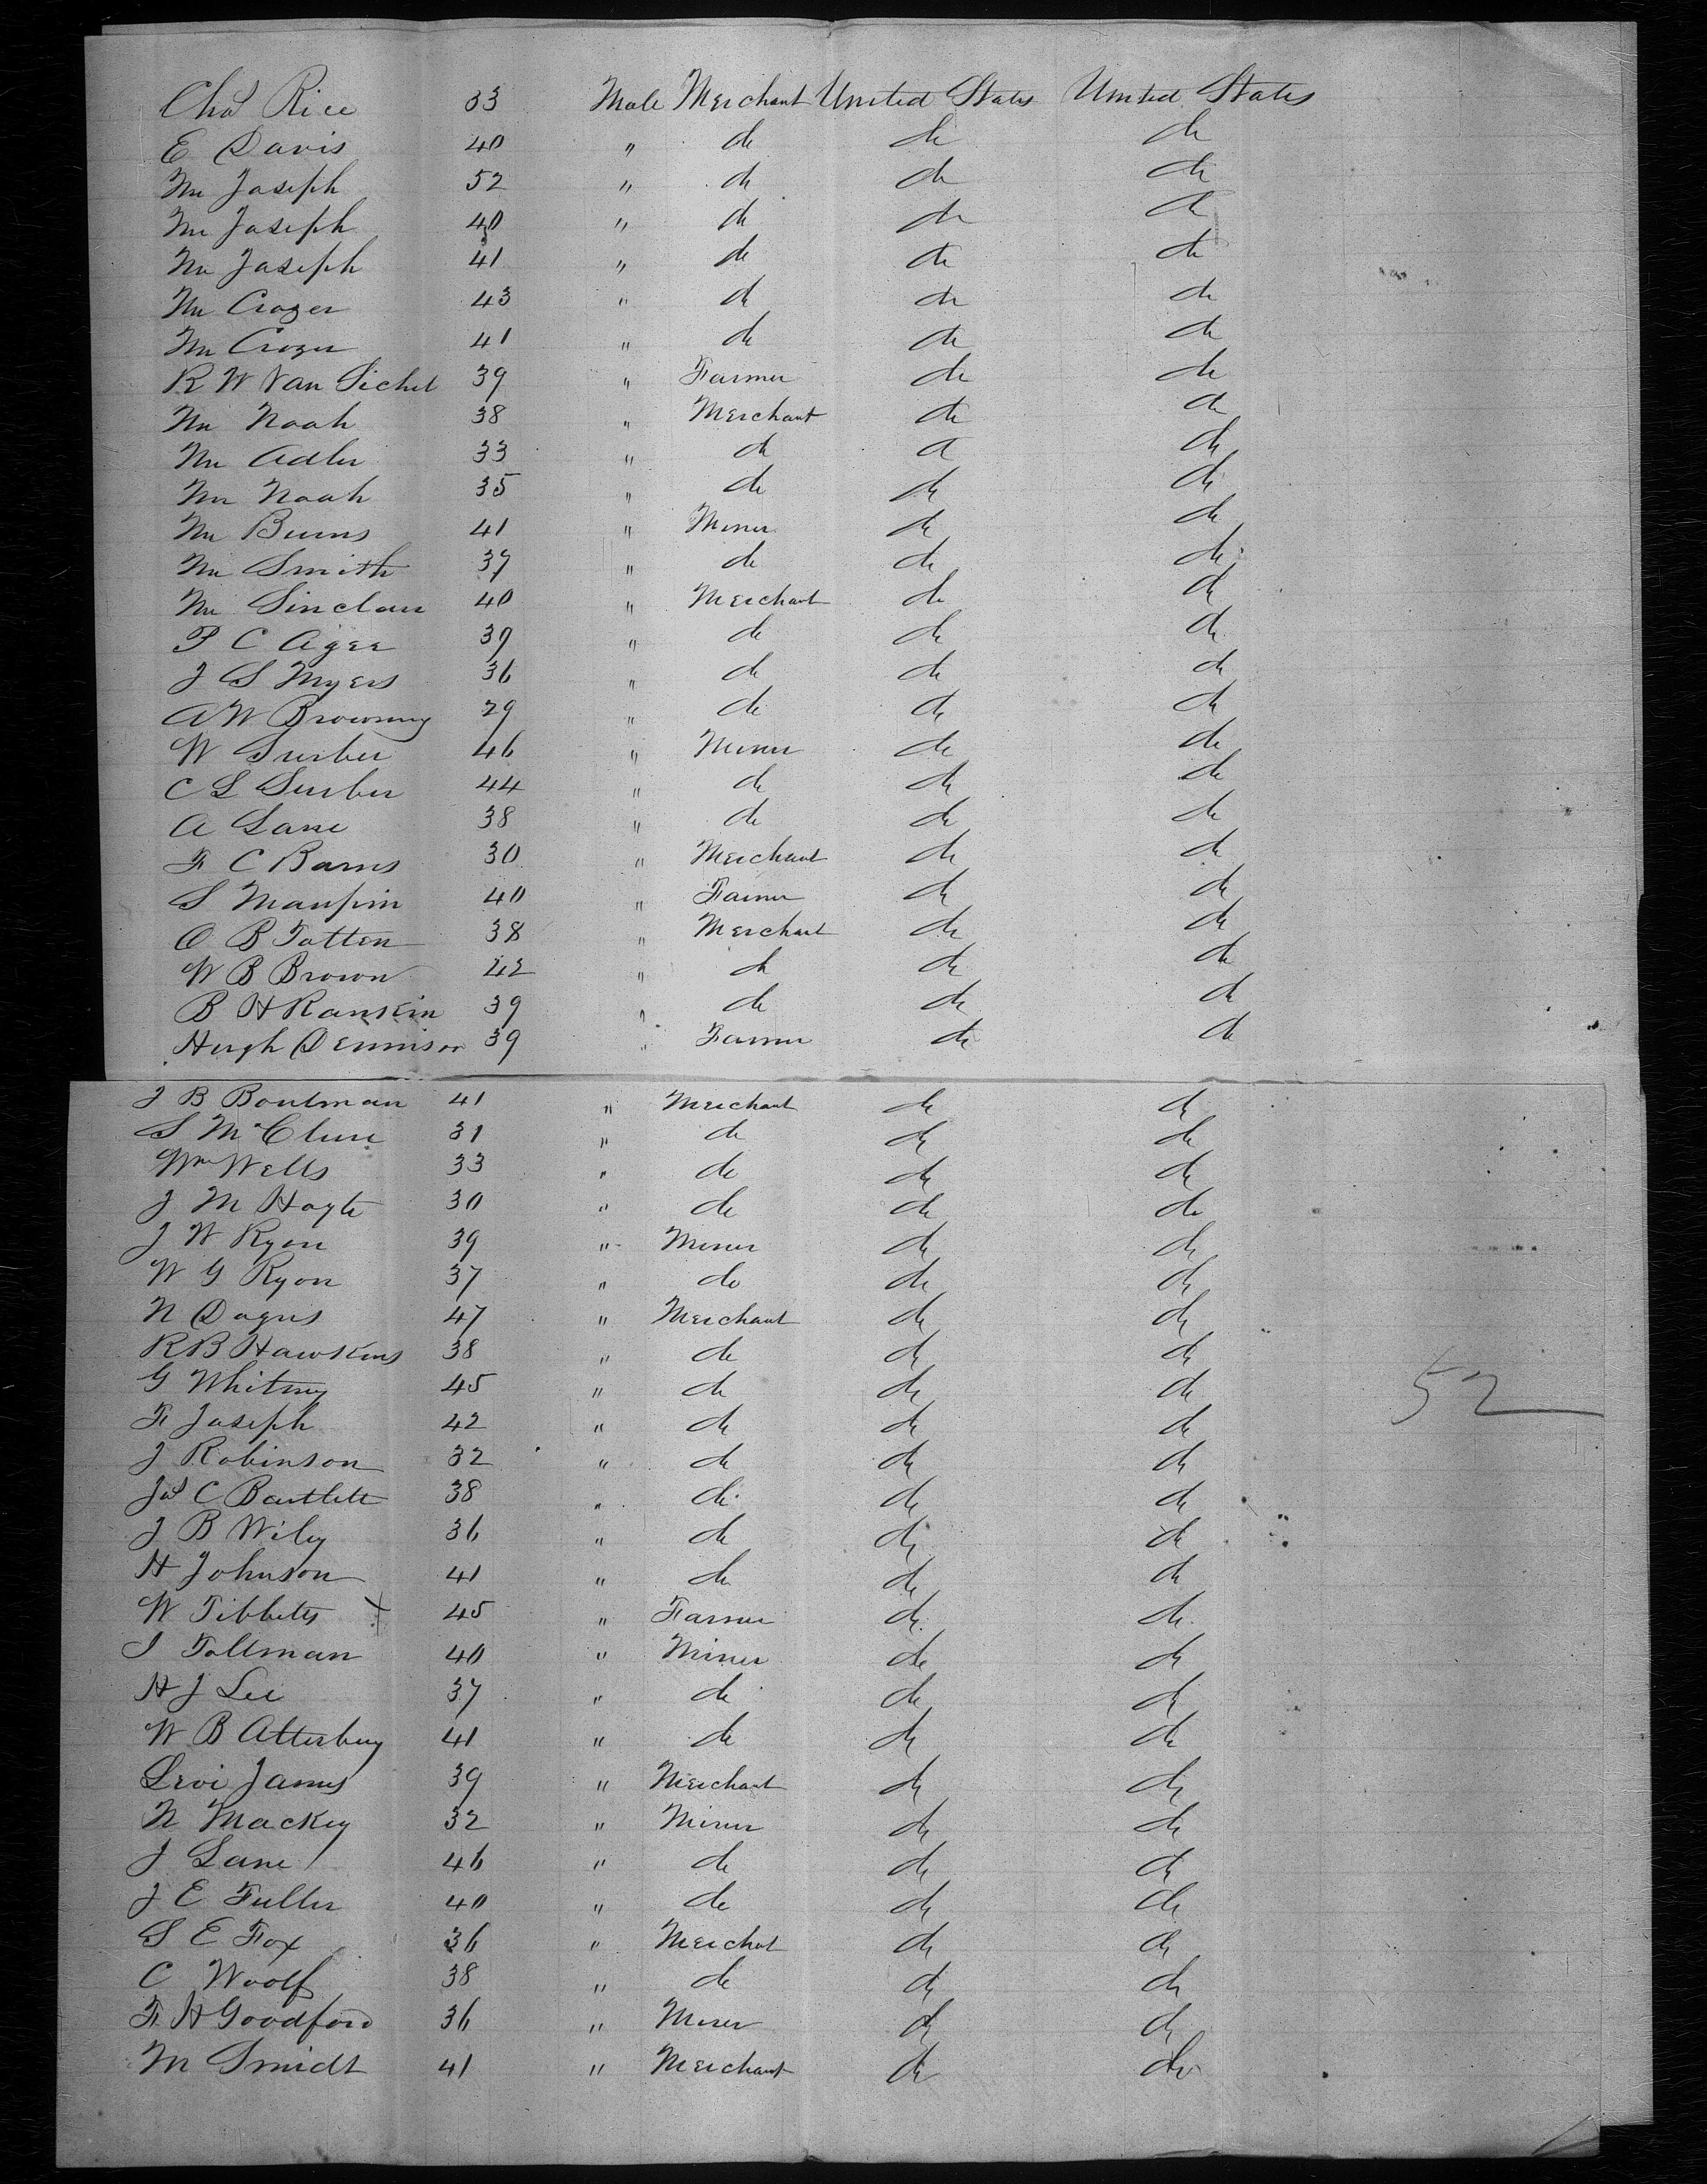 Chas Rice 33 Male Merchant United States United States
E Davis 40 " do do do
Mr Joseph 52 " do do do
Mr Joseph 40 " do do do
Mr Joseph 41 " do do do
Mr Crozer 43 " do do do
Mr Crozer 41 " do do do
R W Van Sichel 39 " Farmer do do
Mr Noah 38 " Merchant do do
Mr Adler 33 " do do do
Mr Noah 35 " do do do
Mr Burns 41 " Miner do do
Mr Smith 37 " do do do
Mr Sinclair 40 " Merchant do do
P C Agee 39 " do do do
J S Myers 36 " do do do
A W Browning 29 " do do do
W Surber 46 " Miner do do
C L Surber 44 " do do do
A Lane 38 " do do do
F C Barns 30 " Merchant do do
S Maupin 40 " Farmer do do
O B Totten 38 " Merchant do do
W B Brown 42 " do do do
B H Ranskin 39 " do do do
Hugh Dennison 39 " Farmer do do
J B Boutman 41 " Merchant do do
S McClure 31 " do do do
Wm Wells 33 " do do do
J M Hoyte 30 " do do do
J W Ryon 39 " Miner do do
W G Ryon 37 " do do do
N Dagus 47 " Merchant do do
R B Hawkins 38 " do do do
G Whitney 45 " do do do
52
F Joseph 42 " do do do
J Robinson 32 " do do do
Jas C Bartlett 38 " do do do
J B Wiley 36 " do do do
H Johnson 41 " do do do
W Tibbetts x 45 " Farmer do do
I Toltman 40 " Miner do do
H J Lee 37 " do do do
W B Atterbury 41 " do do do
Levi James 39 " Merchant do do
N Mackey 32 " Miner do do
J Lane 46 " do do do
J E Fuller 40 " do do do
S E Fox 36 " Merchant do do
C Woolf 38 " do do do
F H Goodford 36 " Miner do do
M Smidt 41 " Merchant do do